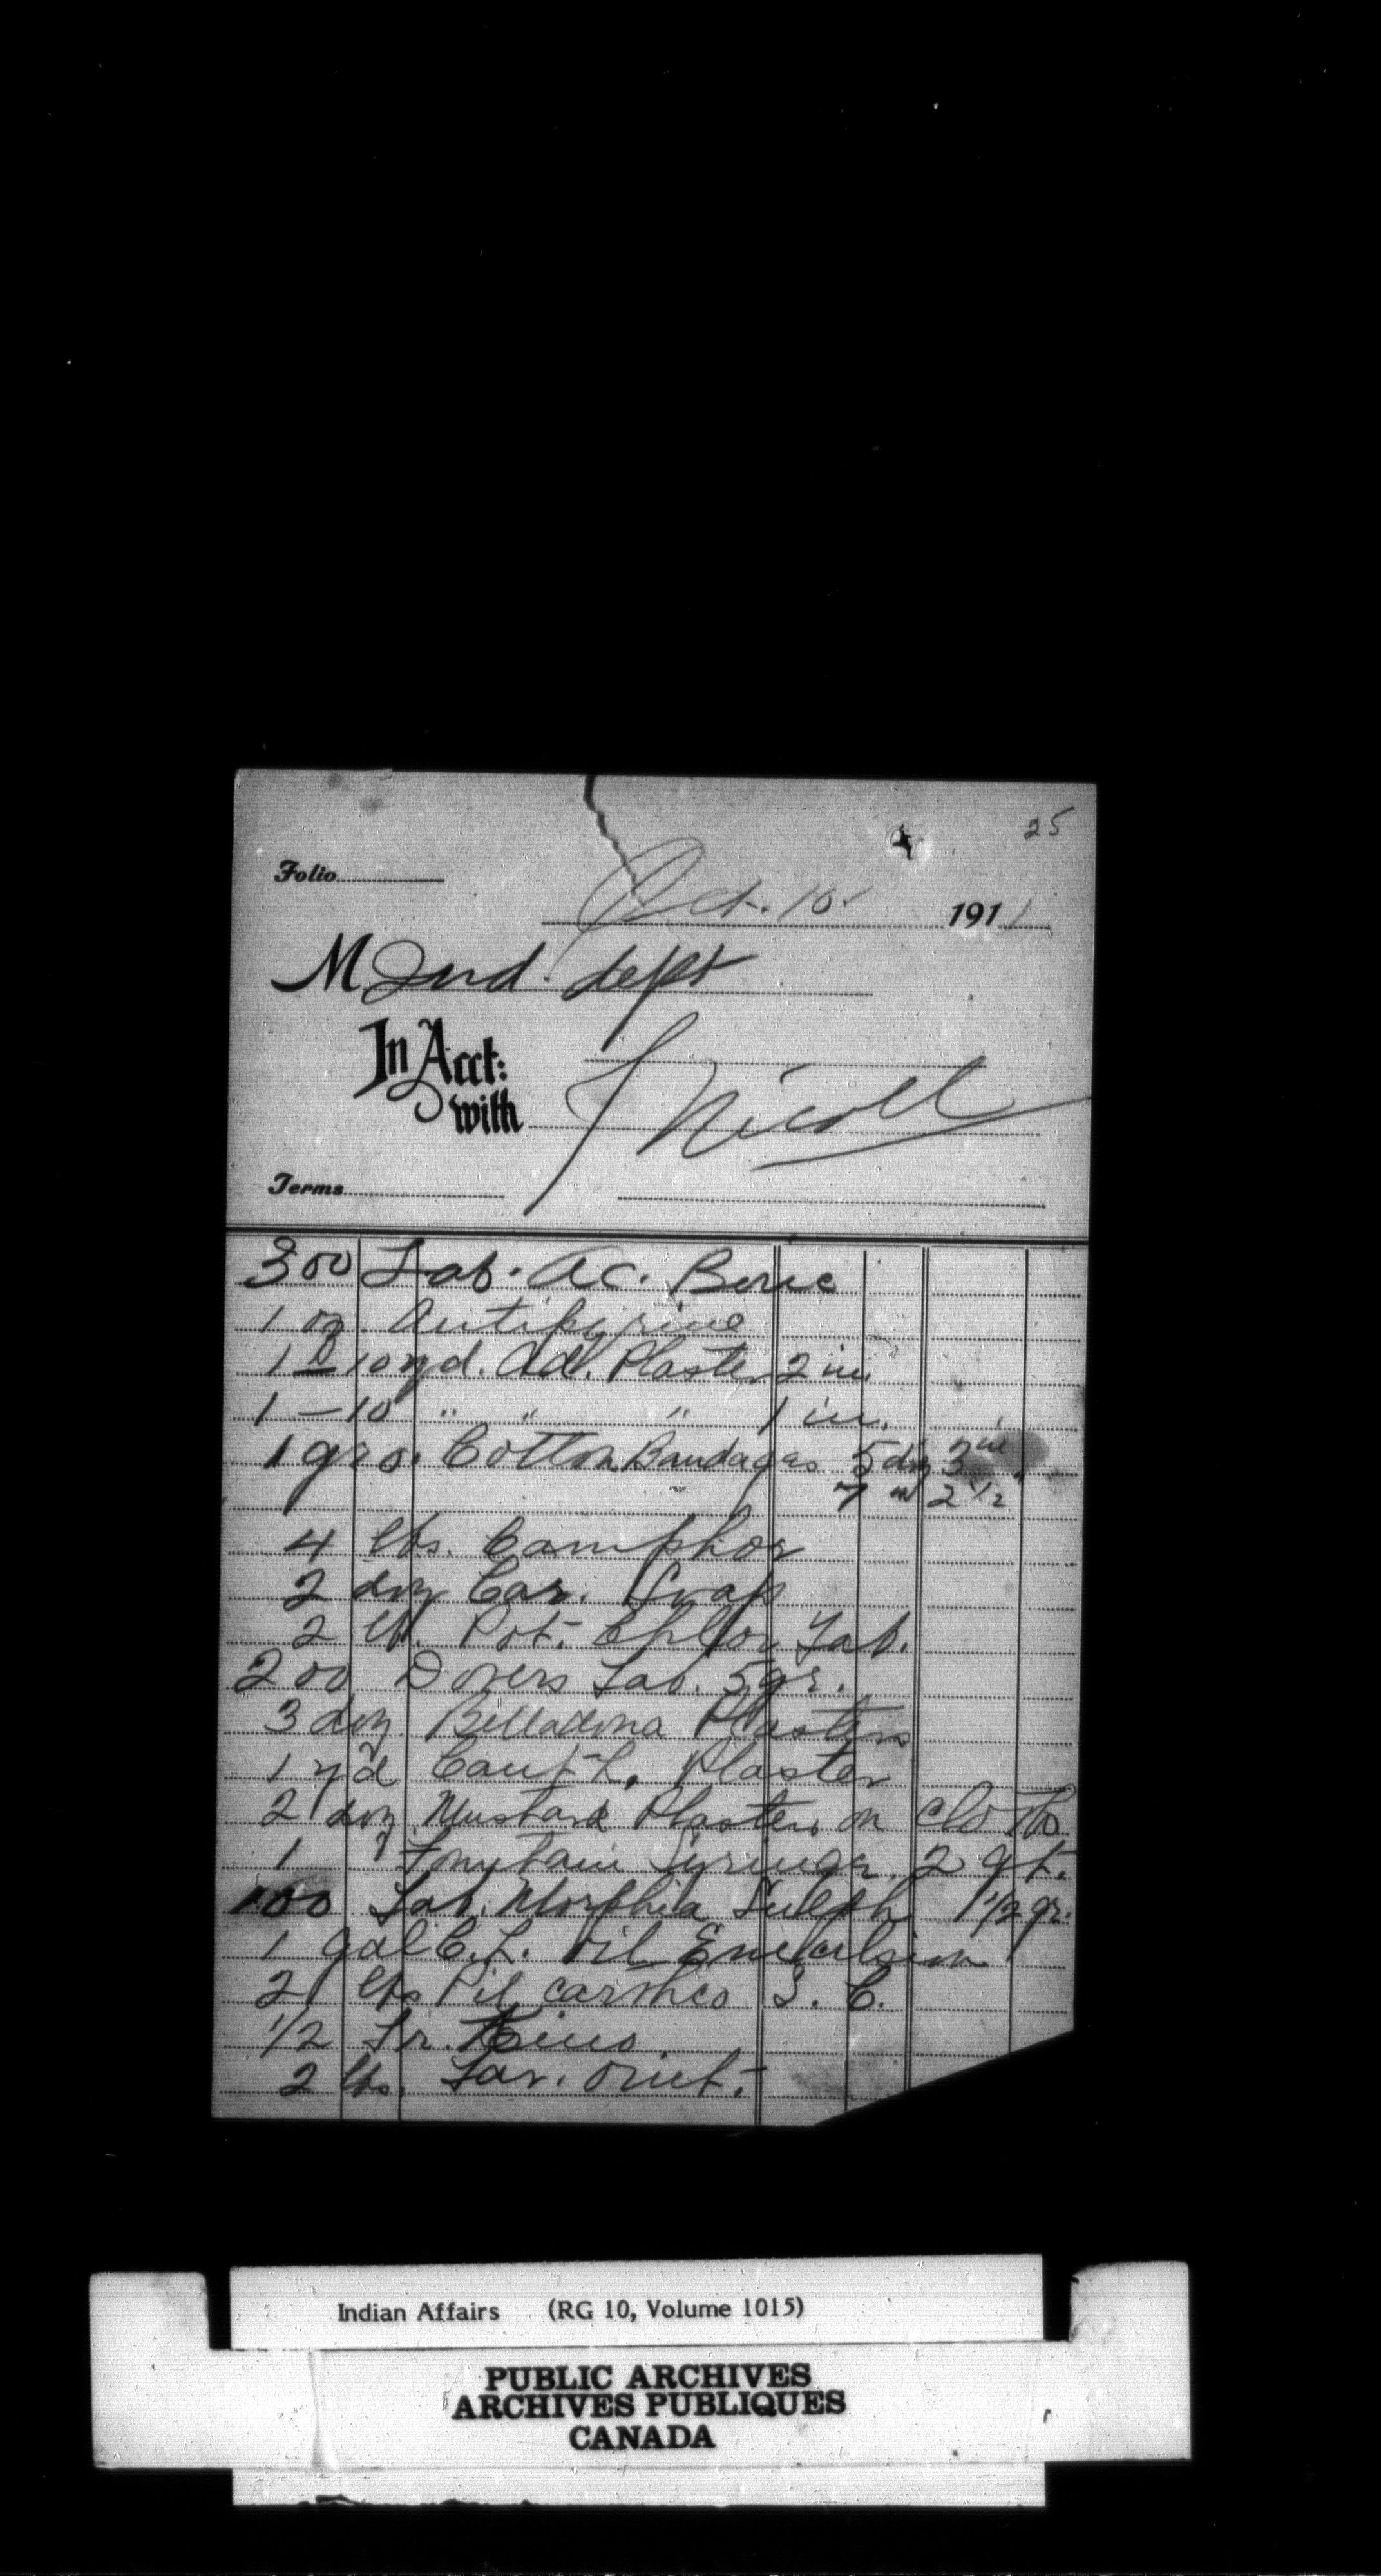 25
Folio
Oct. 10. 1911
M Ind. dept
In Acct: with
J Nicoll
Terms
300 Tab. Ac. Boric
1 oz Antipyrine
1 - 10 yd. Ad. Plaster 2 in.
1 - 10 " " " 1 in.
1 gro. Cotton Bandages 5 doz 3 in.
7 " 2 1/2
4 lbs. Camphor
2 doz Car. Soap
2 lb. Pot. Chlor Tab.
200 Dovers Tab. 5 gr.
3 doz Belladona Plasters
1 yd Canth. Plaster
2 doz Mustard Plasters on Cloth
1 " Fountain Syringes 2 qt.
100 Tab. Morphia Sulph 1 1/2 gr.
1 gal C. L. Oil Emulsion
2 lbs Pil S. C.
1/2 Tr. Kino
2 lbs. Tar. Oint.
Indian Affairs (RG 10, Volume 1015)
PUBLIC ARCHIVES
ARCHIVES PUBLIQUES
CANADA